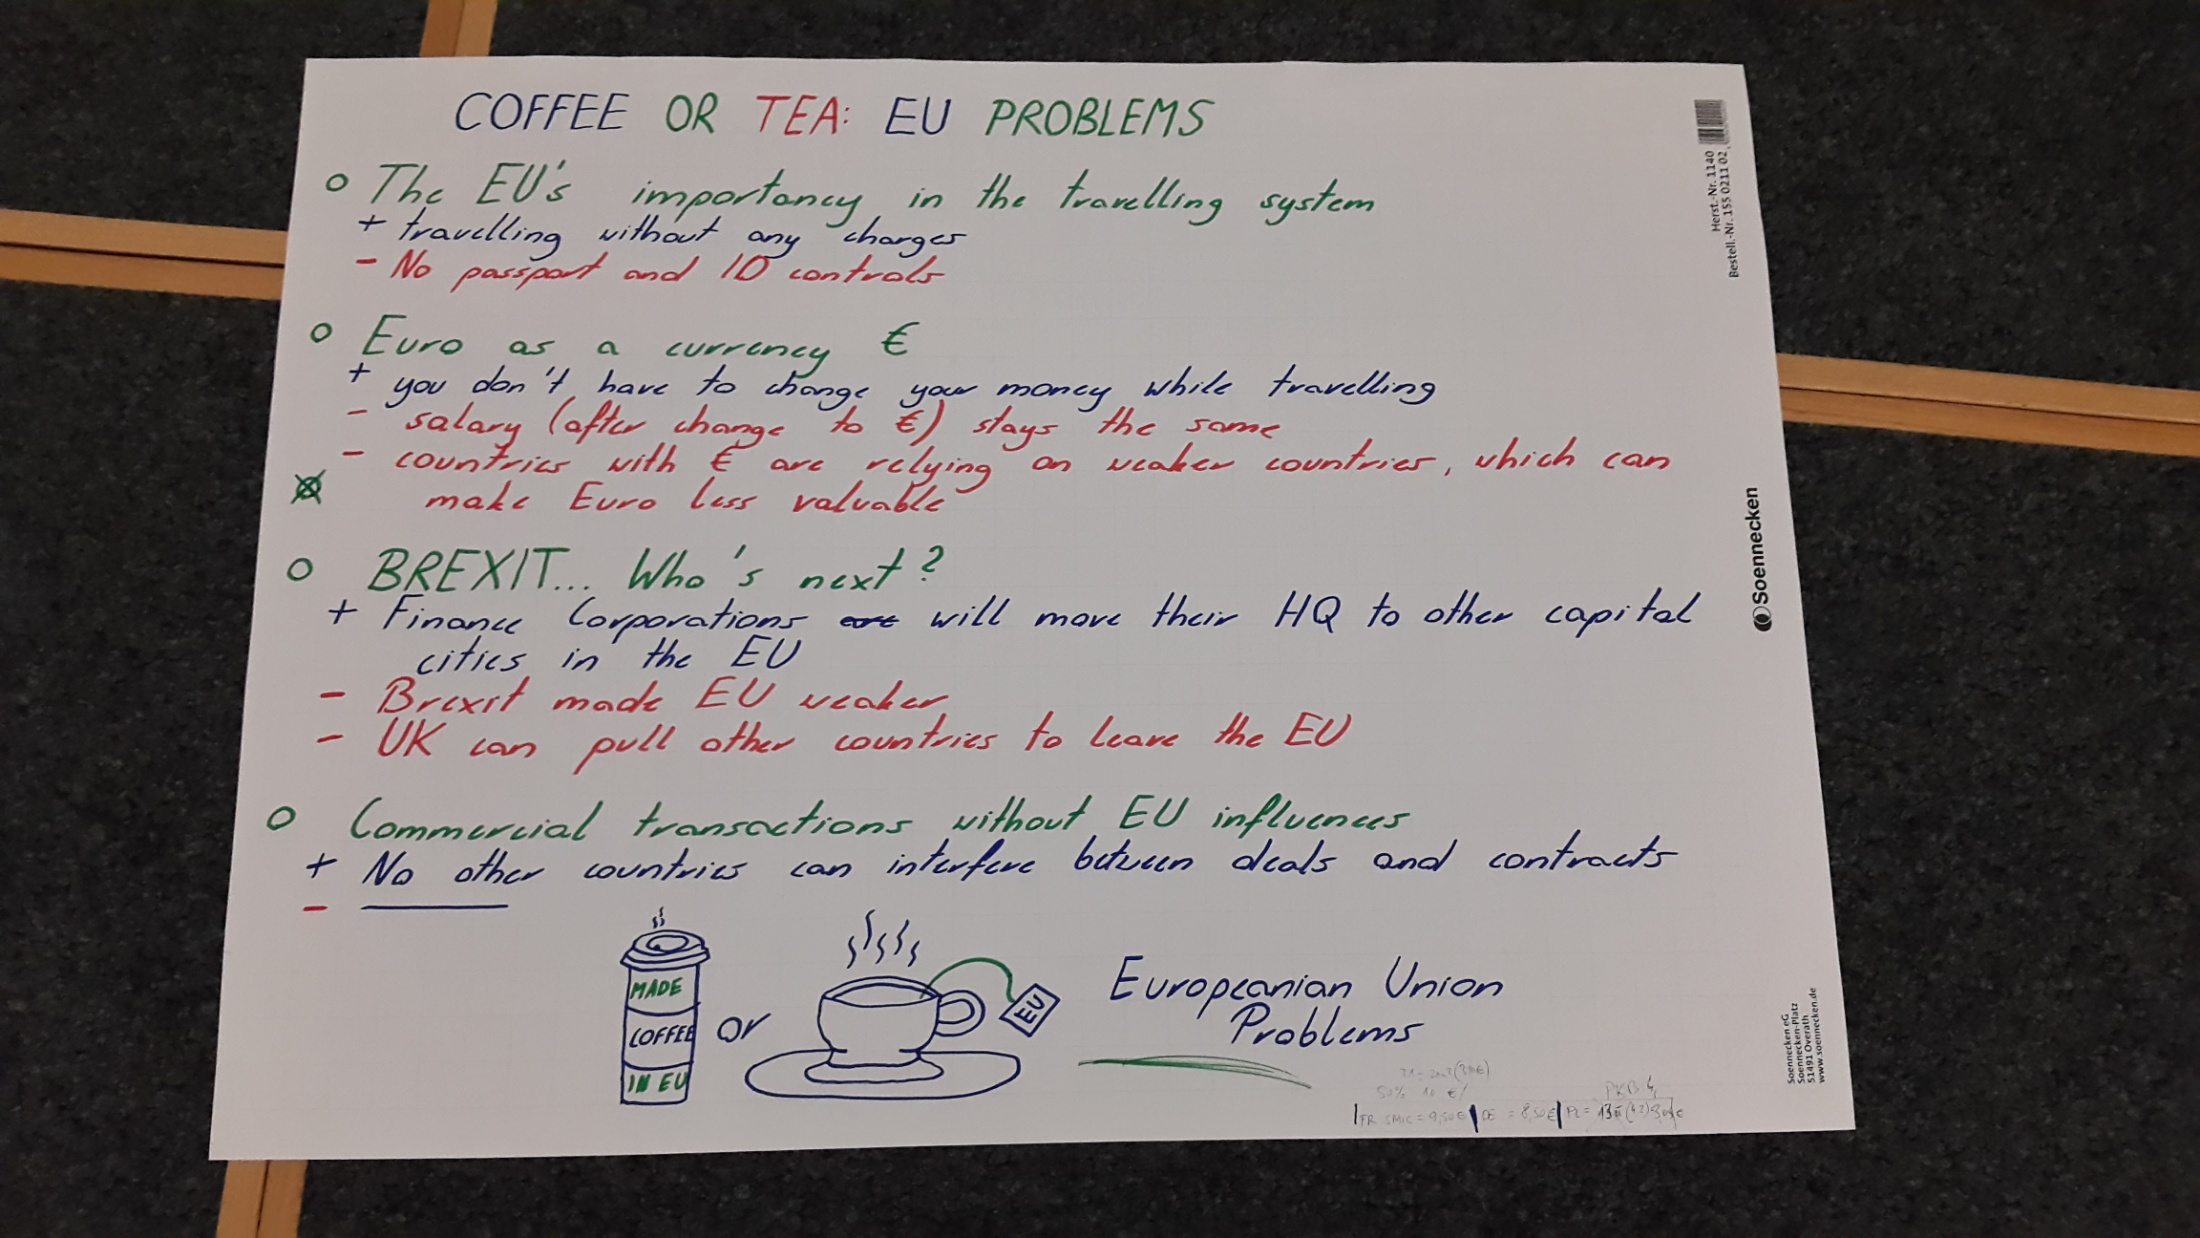 COFFEE OR TEA: EU PROBLEMS
o The EU's importancy in the travelling system
+ travelling without any charges
- No passport and ID controls
o Euro as a currency €
+ you don't have to change your money while travelling
- salary (after change to €) stays the same
- countries with € are relying on weaker countries, which can
make Euro less valuable
o BREXIT... Who's next?
+ Finance Corporations will move their HQ to other capital
cities in the EU
- Brexit made EU weaker
- UK can pull other countries to leave the EU
o Commercial transactions without EU influences
+ No other countries can interfere between deals and contracts
-
MADE
COFFEE
IN EU
or
EU
Europeanian Union
Problems
50% 10 €/
FR SMIC = 9,50€ | DE = 8,50€ | PL =
Herst.-Nr. 1140
Bestell.-Nr. 155 0211 02
Soennecken
Soennecken eG
Soennecken-Platz
51491 Overath
www.soennecken.de